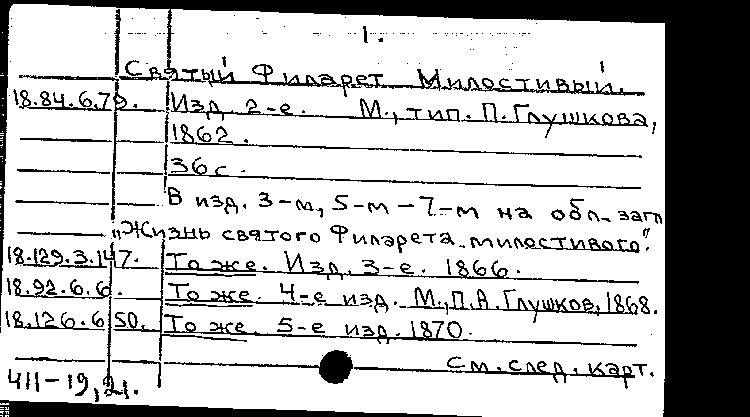 1.
Святый Филарет Милостивый.
18.84.6.79. Изд. 2-е. М., тип. П. Глушкова,
1862.
36 с.
В изд. 3-м, 5-м – 7-м на обл. загл
„Жизнь святого Филарета милостивого".
18.129.3.147. То же. Изд. 3-е. 1866.
18.92.6.6. То же. 4-е изд. М., П.А. Глушков, 1868.
18.126.6.50. То же. 5-е изд. 1870.
См. след. карт.
411-19, 21.